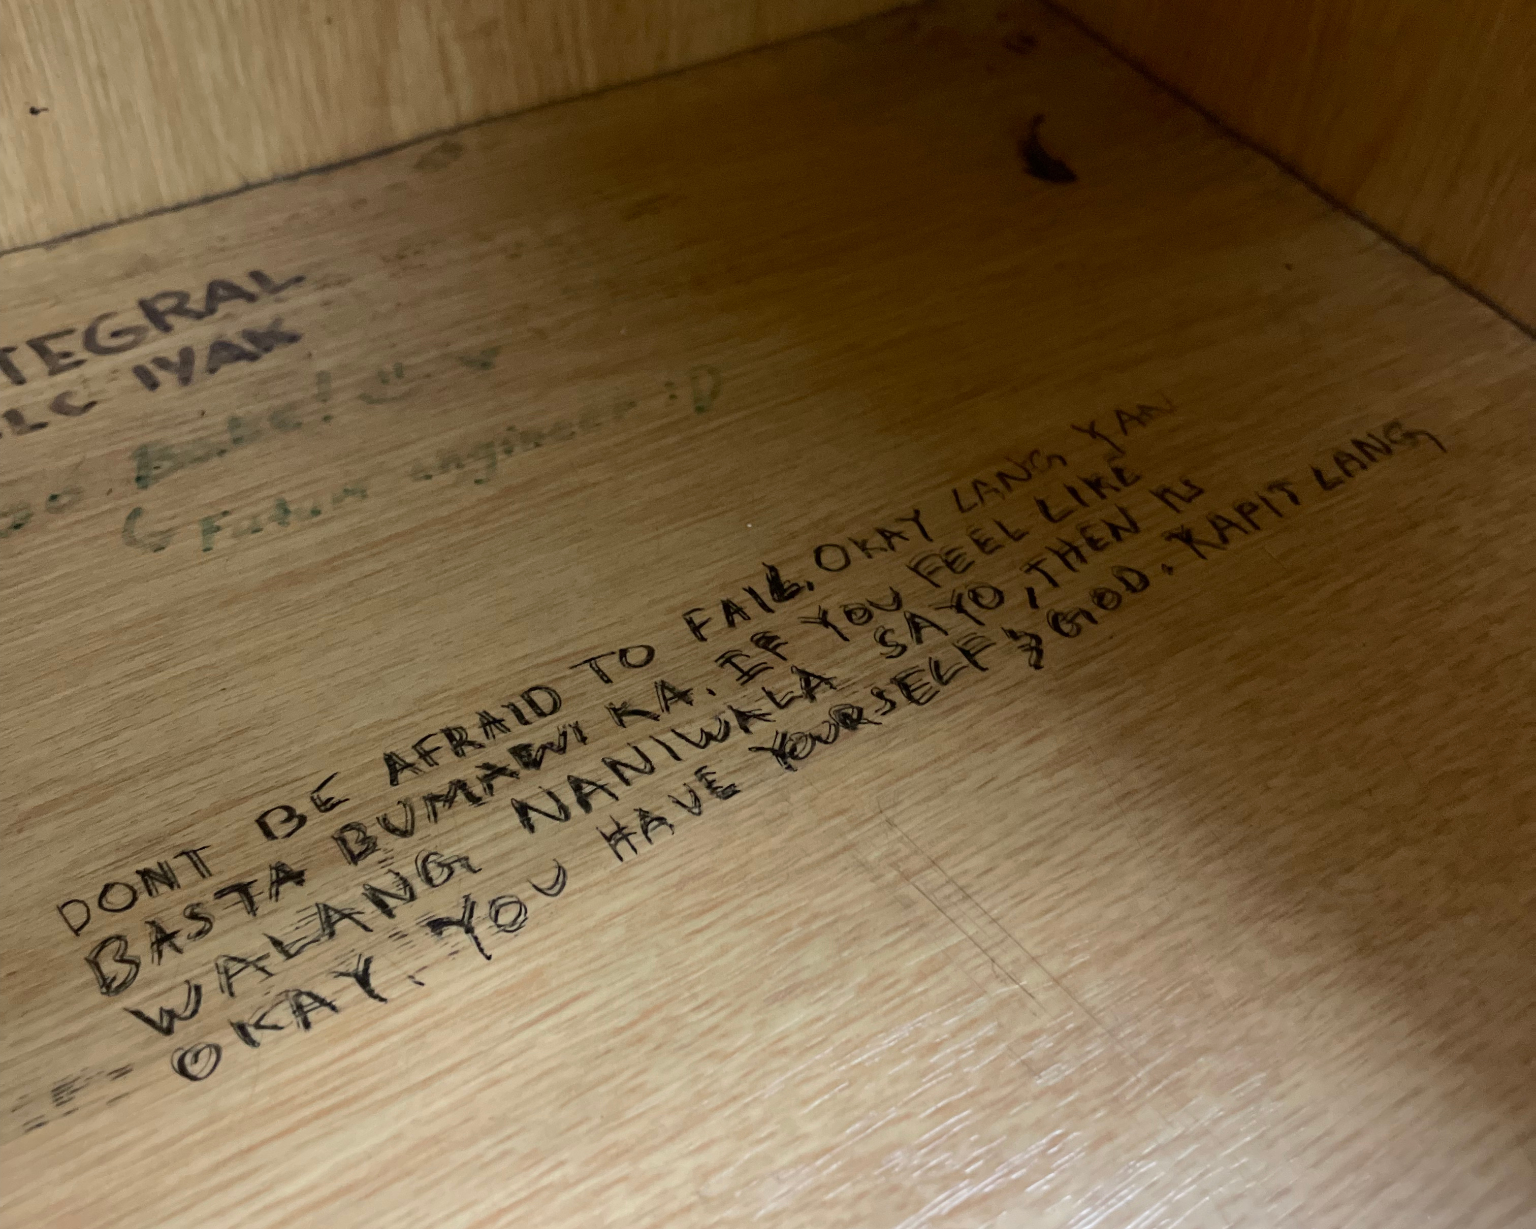 TEGRAL
LC IYAK
Babe!
Future engineer :D
DONT BE AFRAID TO FAIL, OKAY LANG YAN
BASTA BUMAWI KA. IF YOU FEEL LIKE
WALANG NANIWALA SAYO, THEN ITS
OKAY. YOU HAVE YOURSELF & GOD. KAPIT LANG,